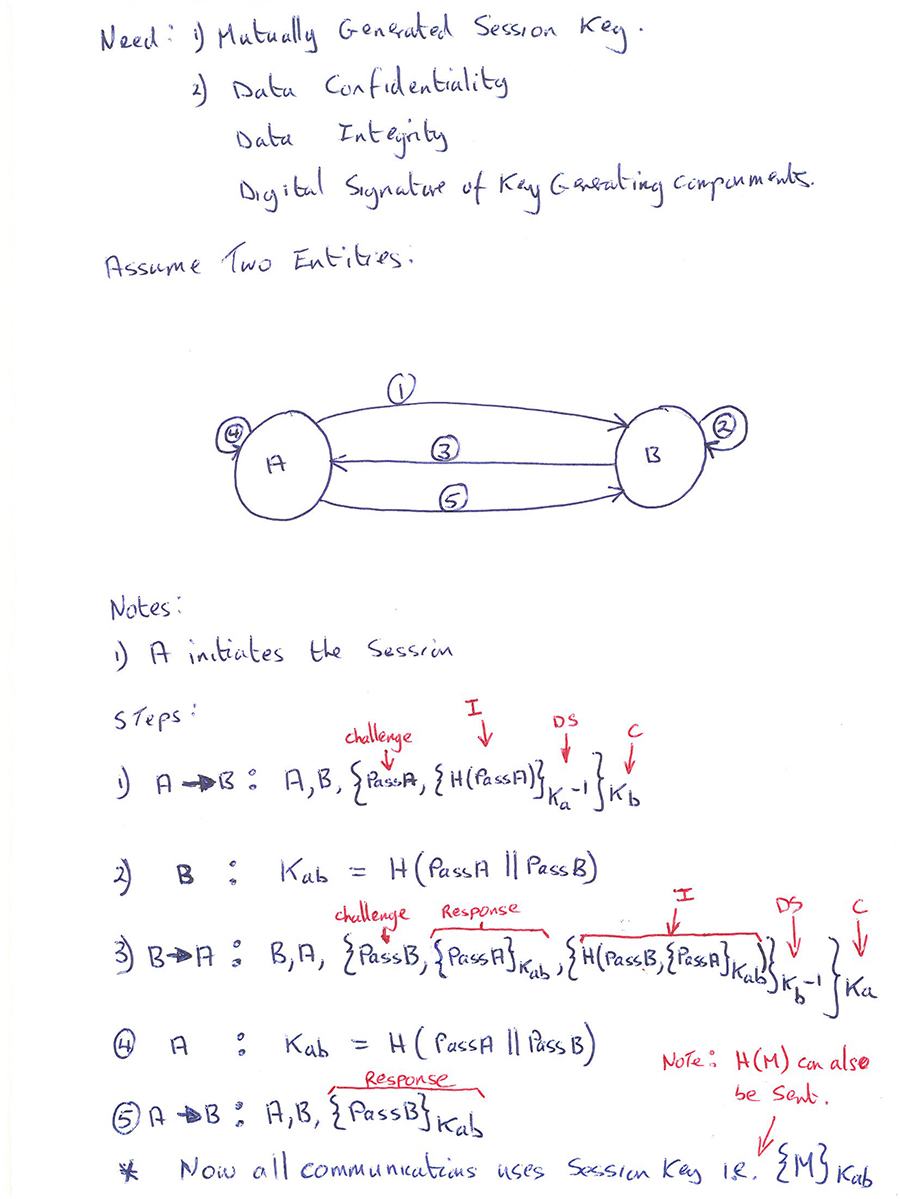 Need: 1) Mutually Generated Session Key.
2) Data Confidentiality
Data Integrity
Digital Signature of Key Generating components.
Assume Two Entities:
①
④ A ③ B ②
⑤
Notes:
1) A initiates the Session
Steps:
challenge I DS C
1) A → B : A, B, {PassA, {H(PassA)}Ka⁻¹}Kb
2) B : Kab = H(PassA || PassB)
challenge Response I DS C
3) B → A : B, A, {PassB, {PassA}Kab, {H(PassB, {PassA}Kab)}Kb⁻¹}Ka
④ A : Kab = H(PassA || PassB)
Note: H(M) can also
be sent.
Response
⑤ A → B : A, B, {PassB}Kab
* Now all communications uses Session Key i.e. {M}Kab